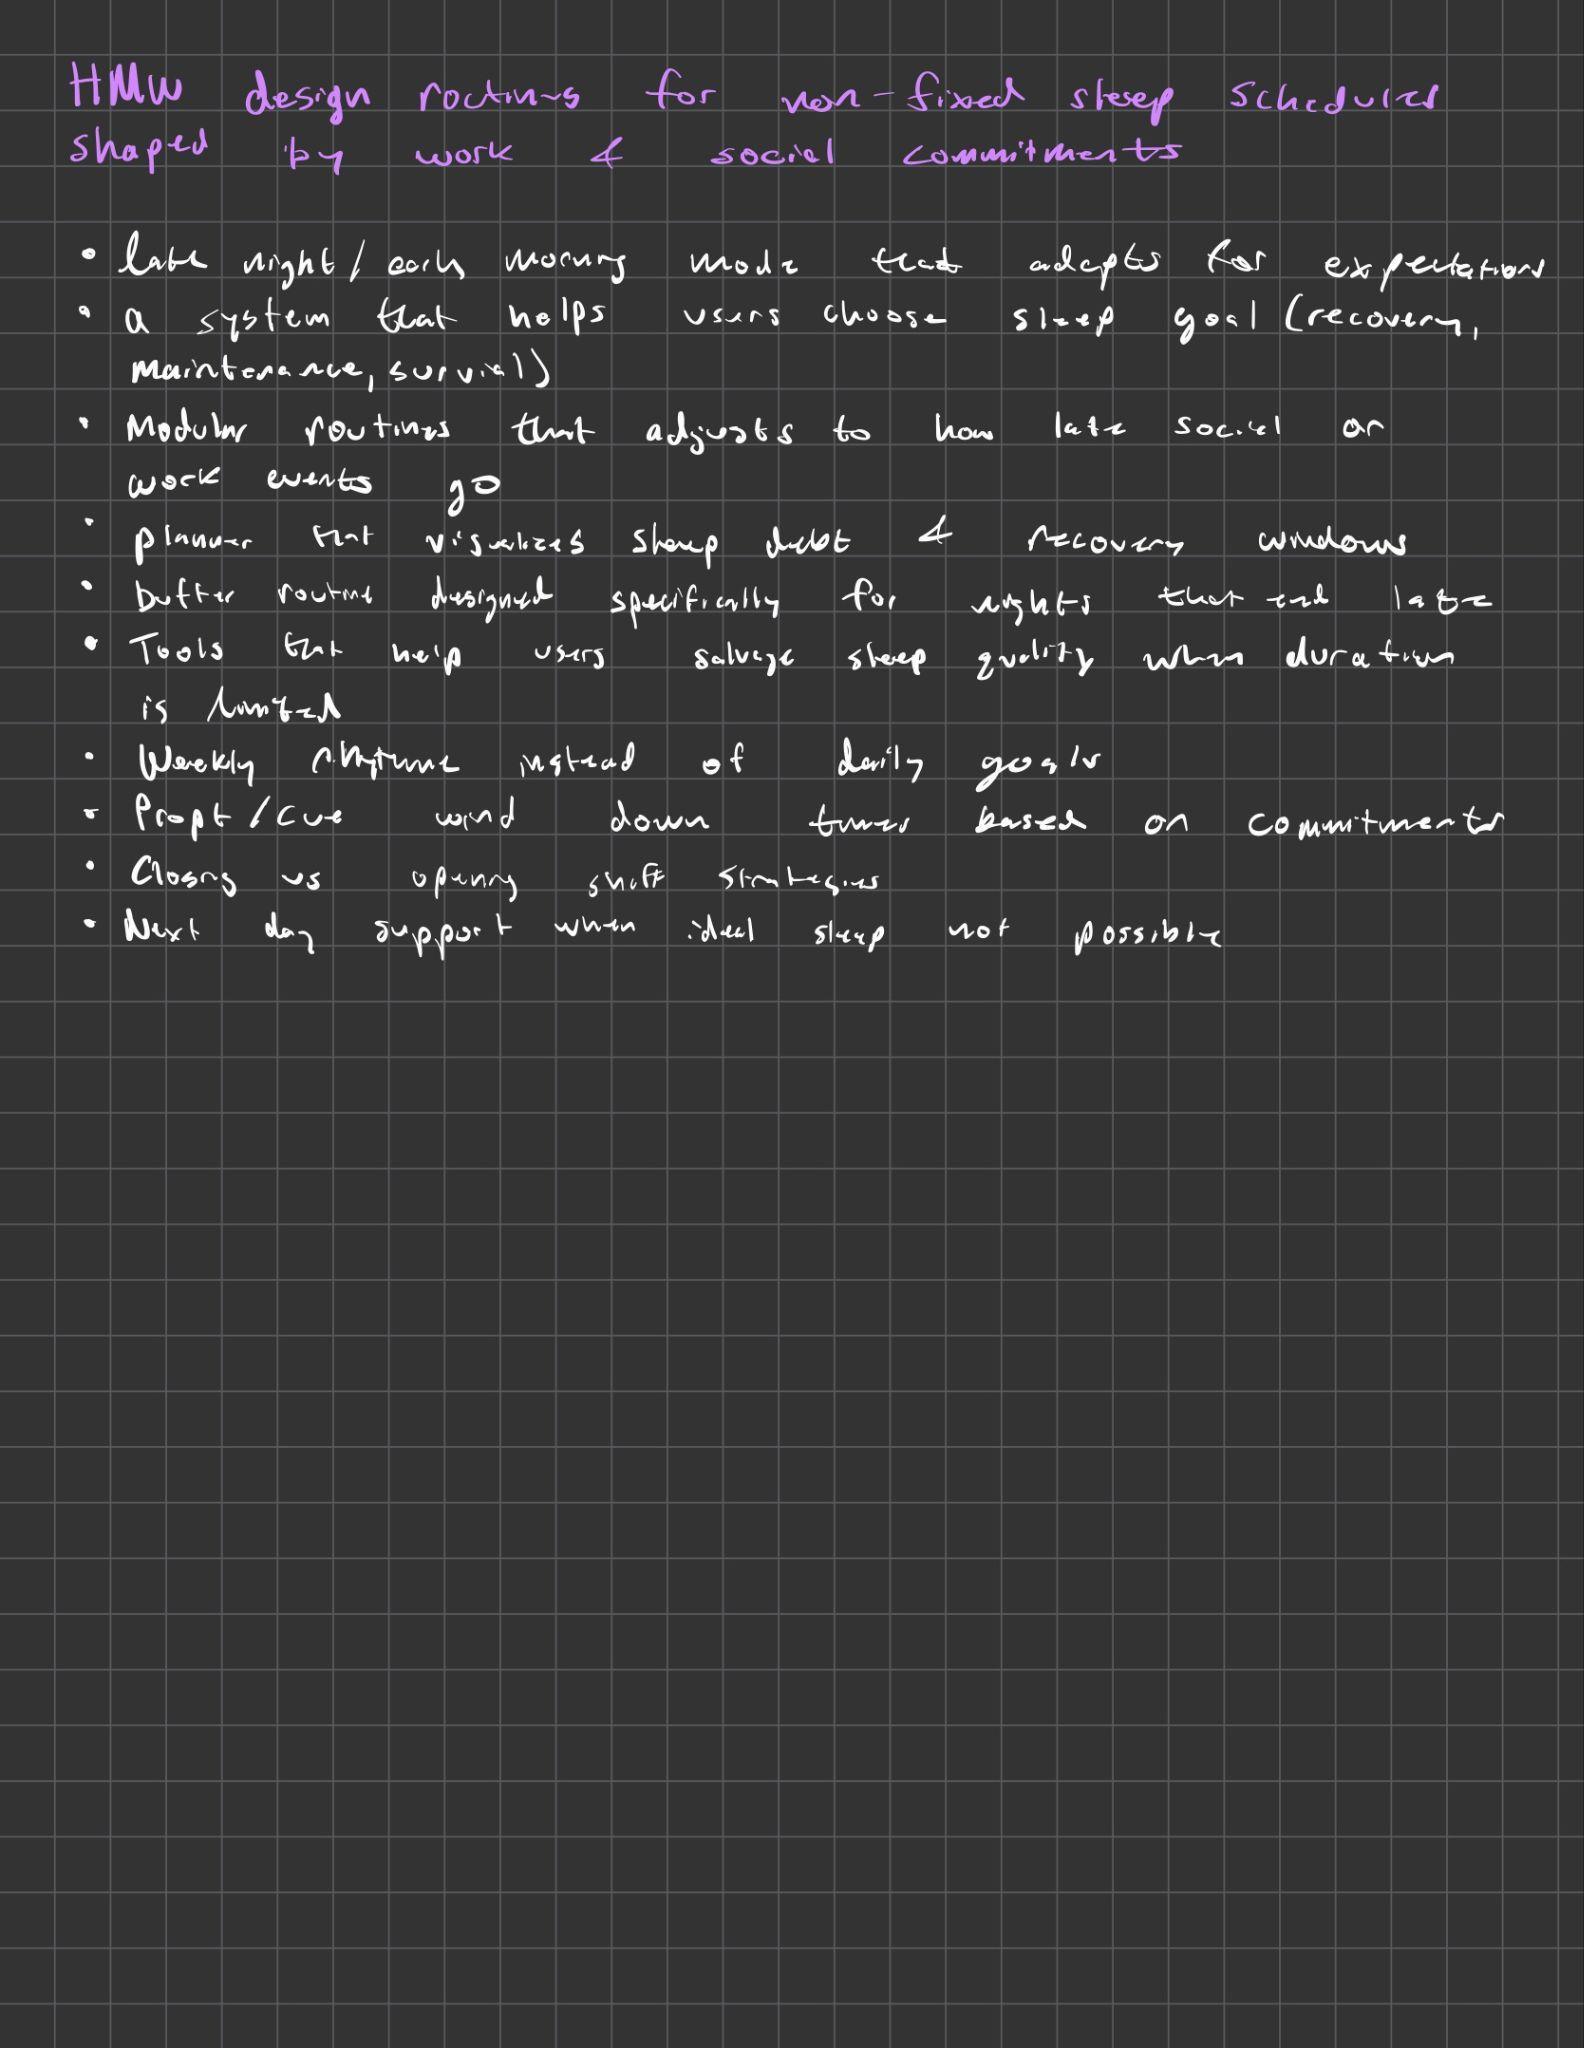 HMW design routines for non-fixed sleep schedules
shaped by work & social commitments
• late night / early morning mode that adapts for expectations
• a system that helps users choose sleep goal (recovery,
maintenance, survival)
• Modular routines that adjusts to how late social or
work events go
• planner that visualizes sleep debt & recovery windows
• buffer routine designed specifically for nights that end late
• Tools that help users salvage sleep quality when duration
is limited
• Weekly instead of daily goals
• Propt / cue wind down times based on commitments
• Closing vs opening shift strategies
• Next day support when ideal sleep not possible